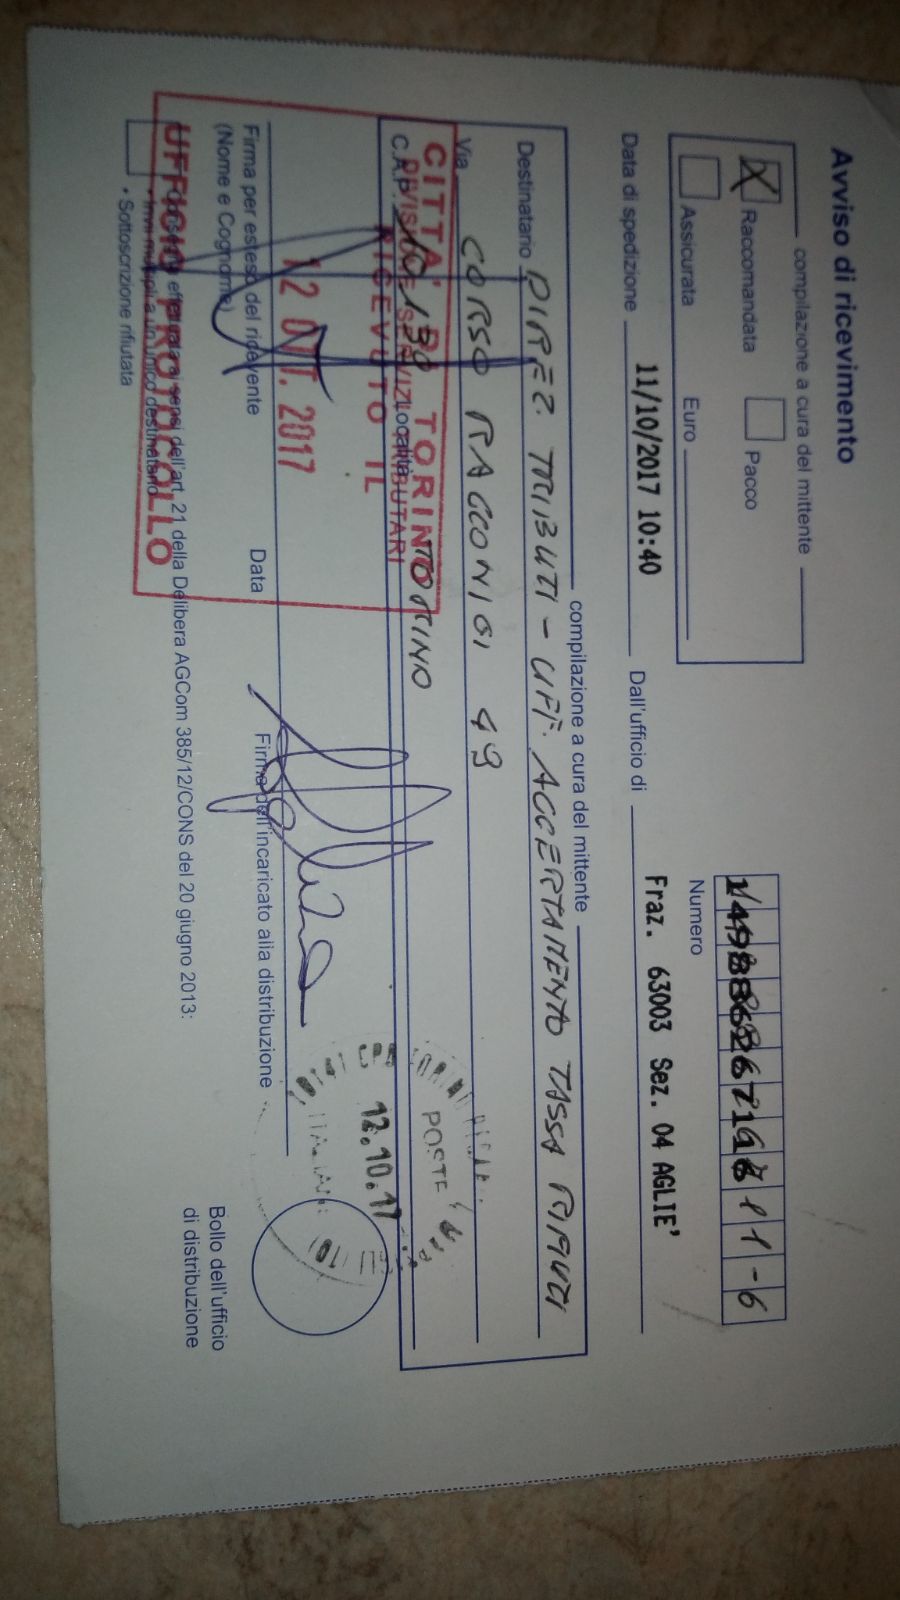 Avviso di ricevimento
compilazione a cura del mittente
X Raccomandata Pacco
Assicurata Euro
Numero
1 1-6
Data di spedizione 11/10/2017 10:40 Dall'ufficio di Fraz. 63003 Sez. 04 AGLIE'
compilazione a cura del mittente
Destinatario DIREZ. TRIBUTI - UFF. ACCERTAMENTO TASSA RIFIUTI
Via CORSO RACCONIGI 49
C.A.P. Località TORINO
CITTA' DI TORINO
DIVISIONE SERVIZI TRIBUTARI
RICEVUTO IL
12 OTT. 2017
UFFICIO PROTOCOLLO
POSTE
12.10.17
Firma per esteso del ricevente
(Nome e Cognome)
Data
Firma dell'incaricato alla distribuzione
Bollo dell'ufficio
di distribuzione
effettuata ai sensi dell'art. 21 della Delibera AGCom 385/12/CONS del 20 giugno 2013:
• Invii multipli a un unico destinatario
• Sottoscrizione rifiutata